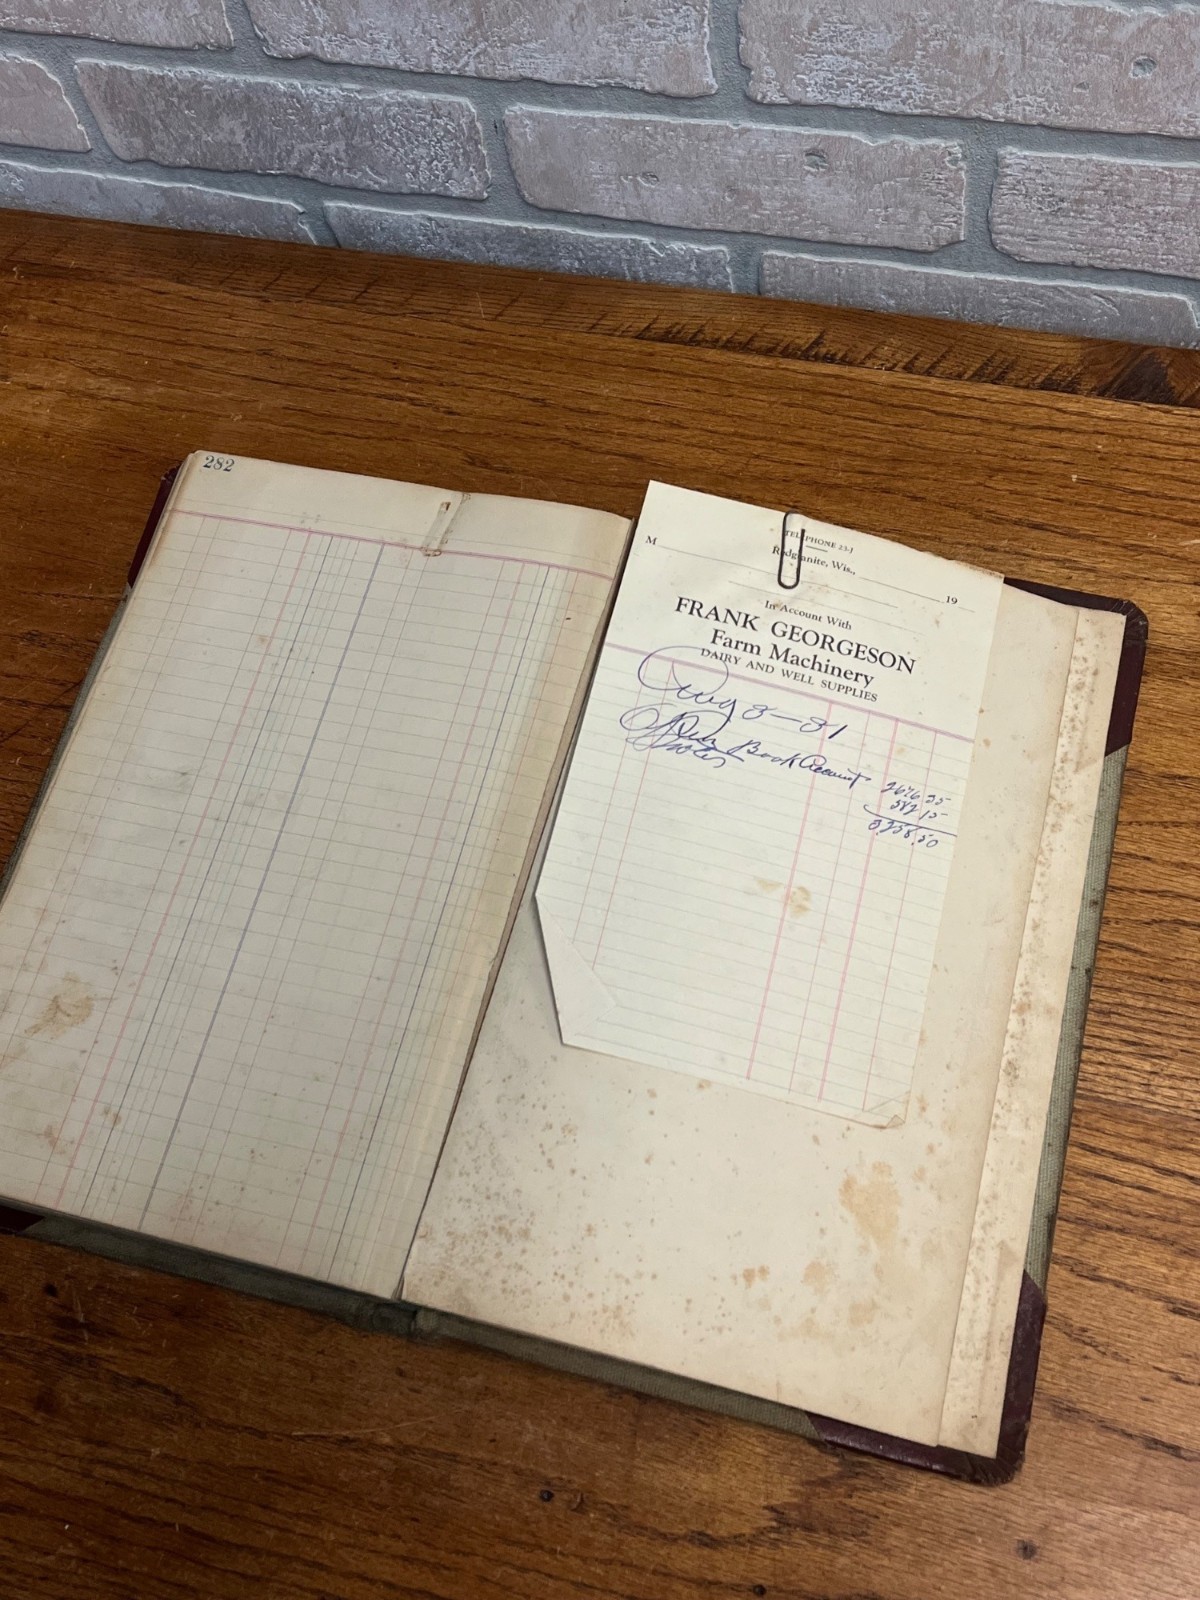 282
TELEPHONE 23-J
M
Redgranite, Wis.,
19
In Account With
FRANK GEORGESON
Farm Machinery
DAIRY AND WELL SUPPLIES
Aug 8-31
Open Book Account 2676.35
Notes 582.15
3258.50